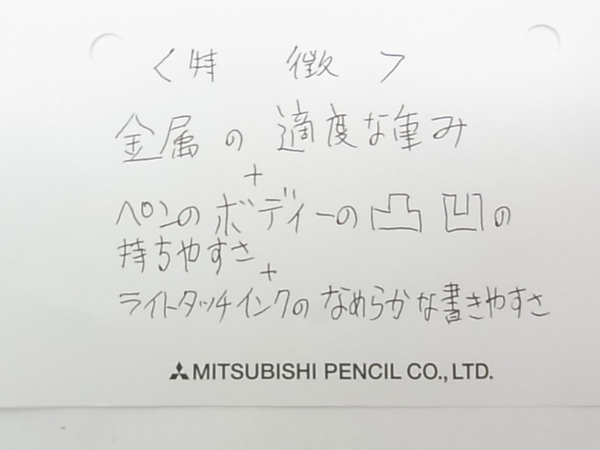 〈特 徴〉
金属の適度な重み
+
ペンのボディーの凸凹の
持ちやすさ
+
ライトタッチインクのなめらかな書きやすさ
MITSUBISHI PENCIL CO., LTD.